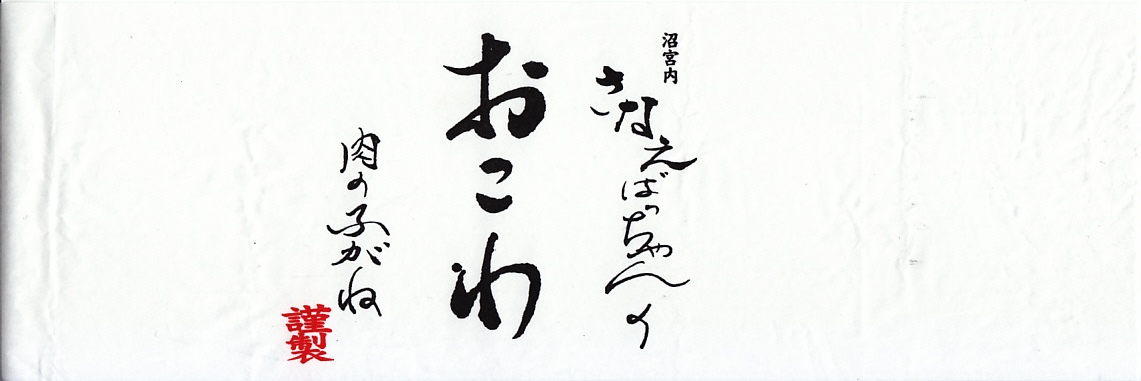 沼宮内
さなえばっちゃんの
おこわ
肉のふがね
謹製